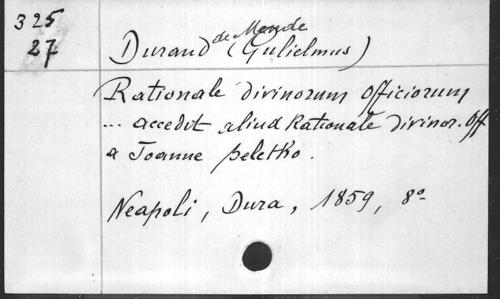 325
27
Durand de Mende (Gulielmus)
Rationale divinorum officiorum
... accedit aliud Rationale divinor. off
a Joanne Beletho.
Neapoli, Dura, 1859, 8o